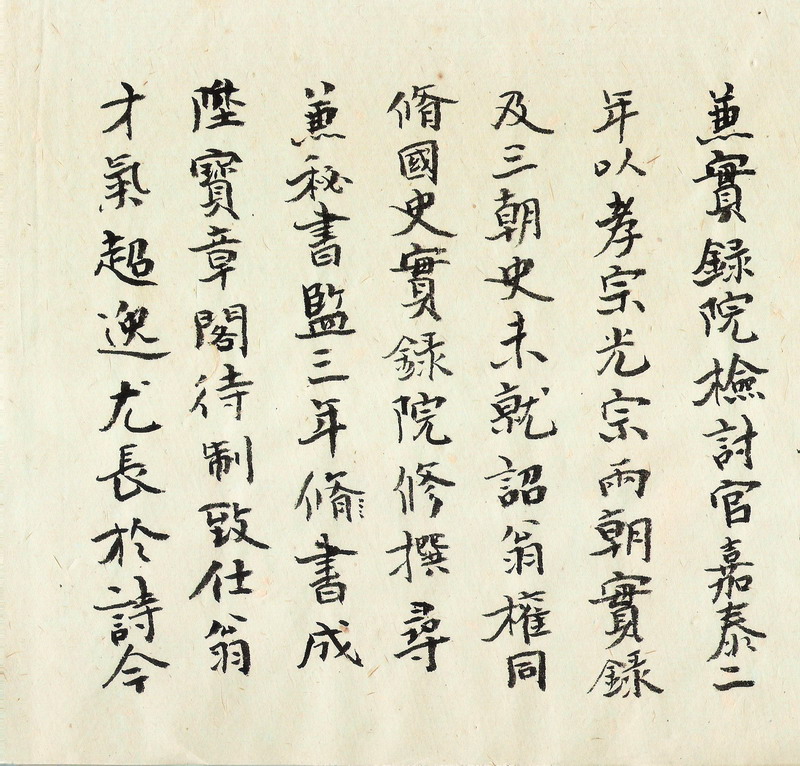 兼實録院檢討官嘉泰二
年以孝宗光宗兩朝實録
及三朝史未就詔翁權同
脩國史實録院修撰尋
兼秘書監三年脩書成
陞寶章閣待制致仕翁
才氣超逸尤長於詩今